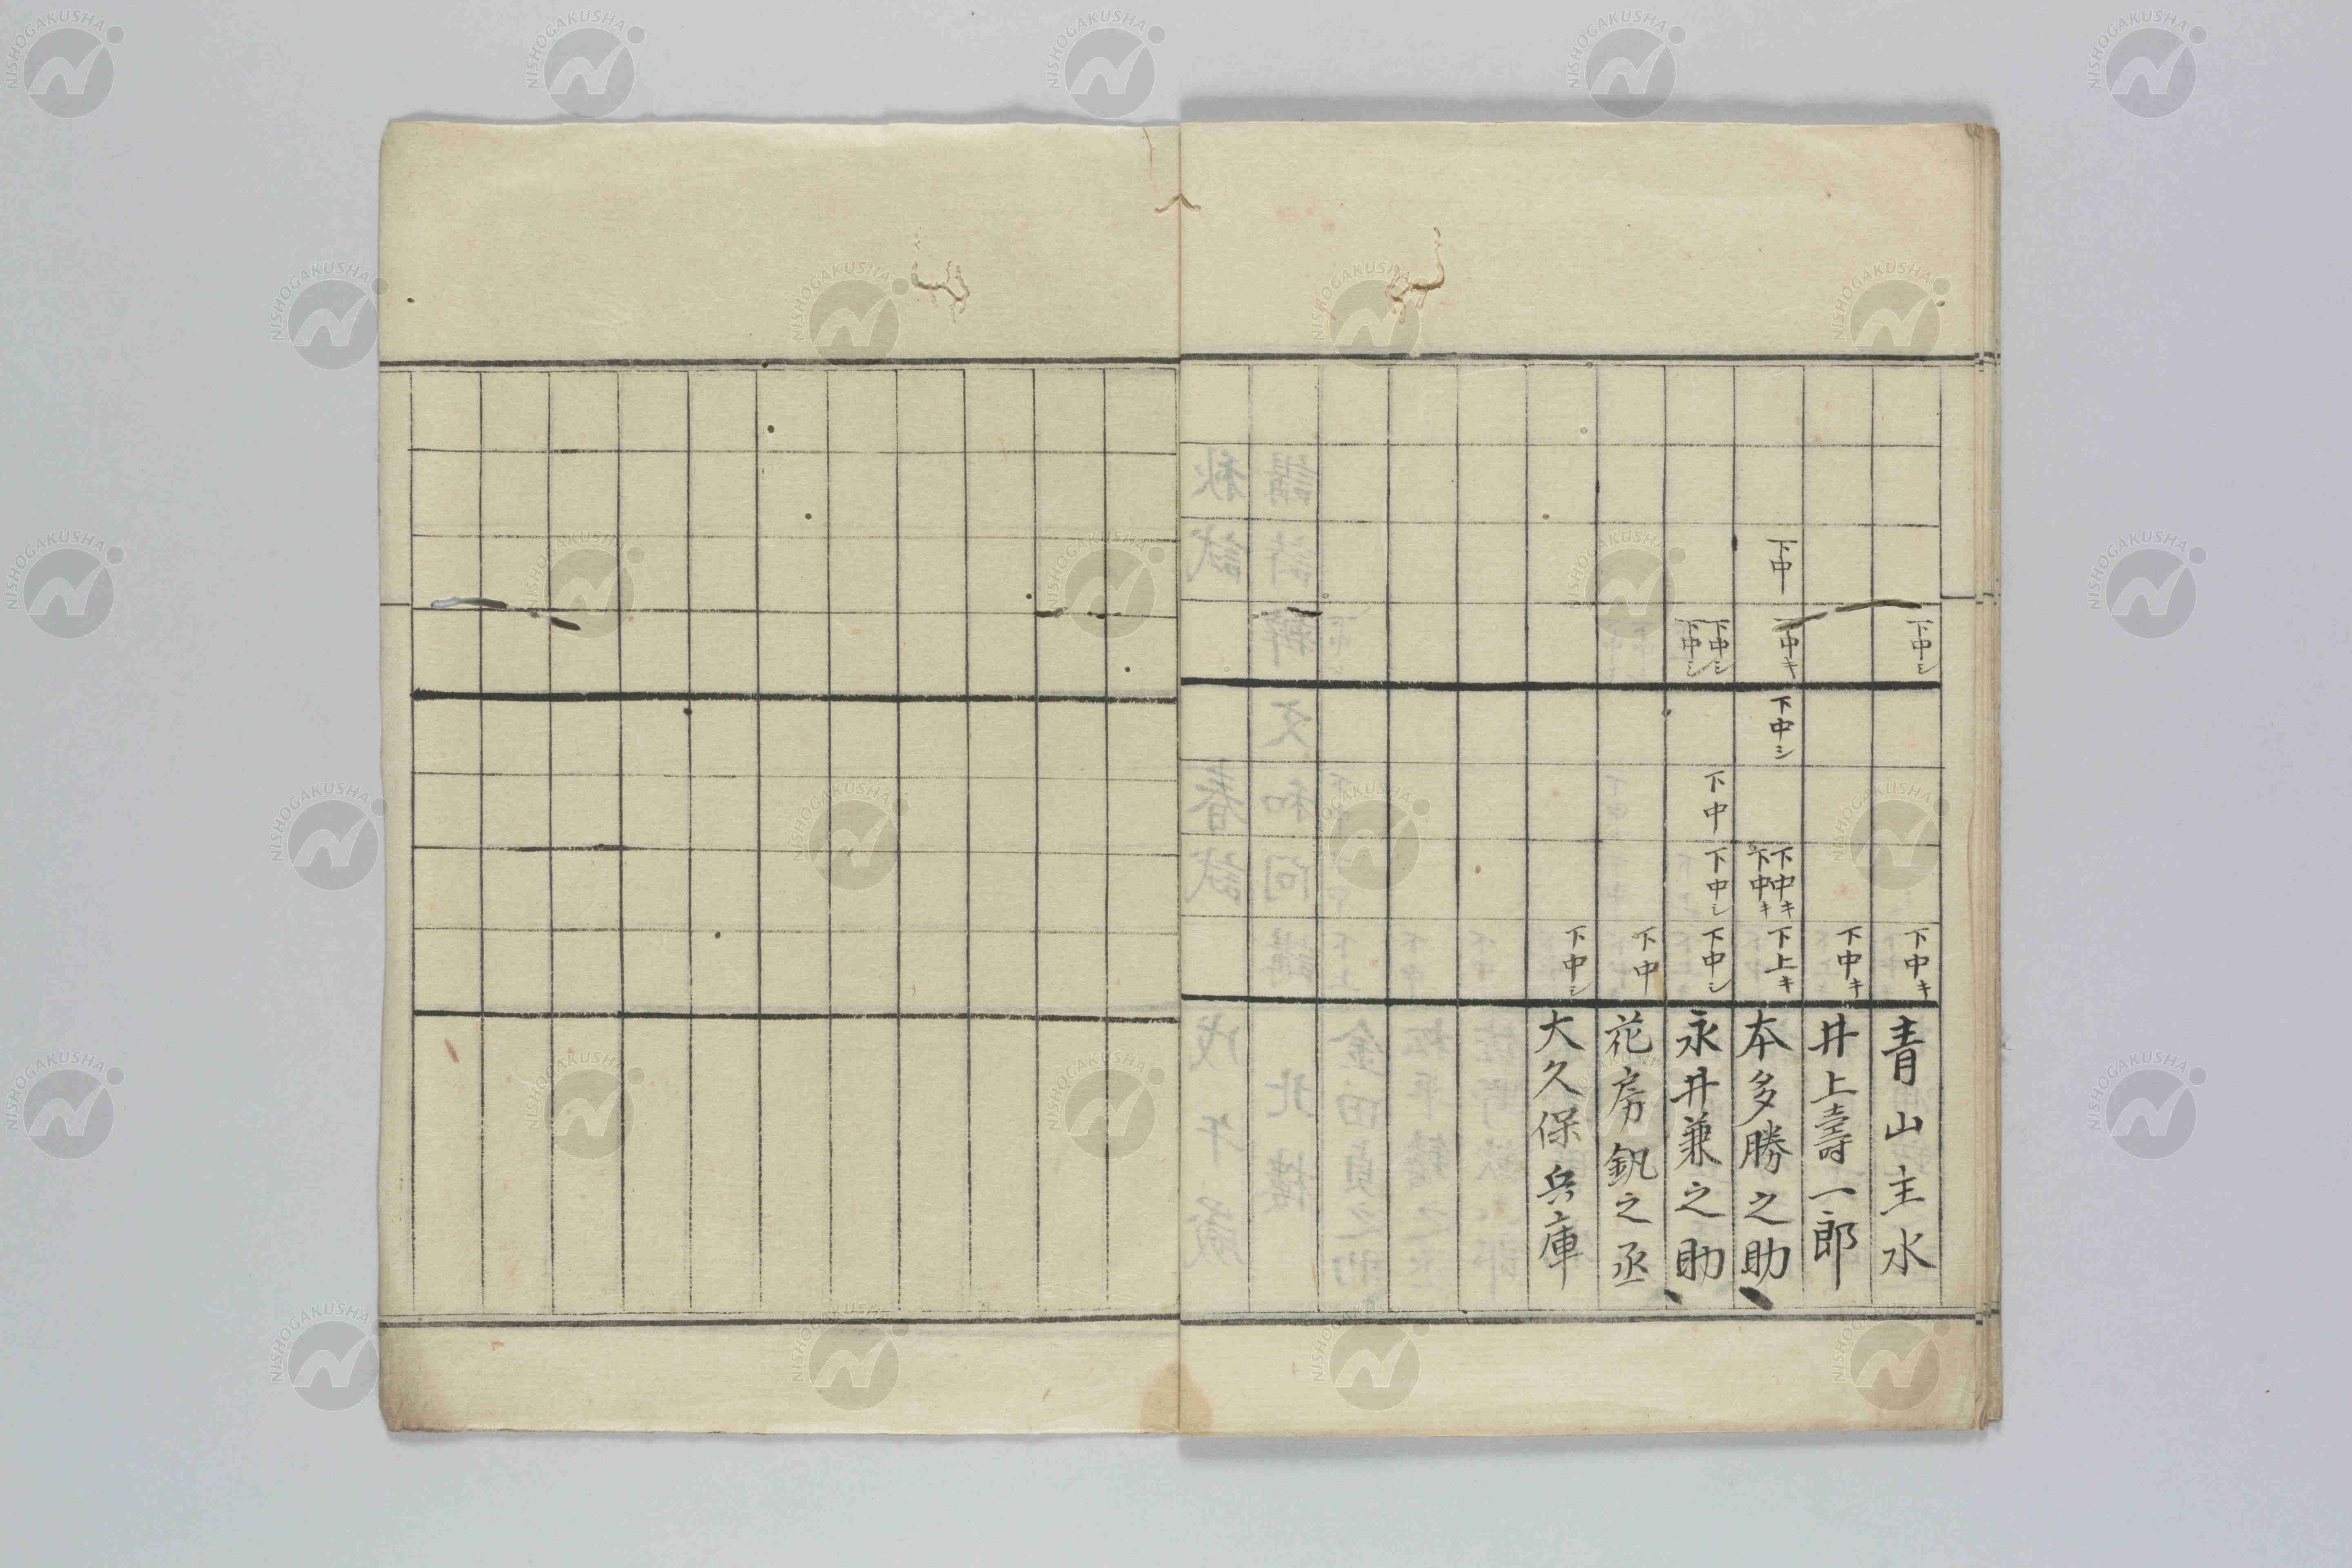 下中シ
下中キ
青山主水
下中キ
井上壽一郎
下中
下中キ
下中シ
下中キ
下中キ
下上キ
本多勝之助
下中シ
下中シ
下中
下中シ
下中シ
永井兼之助
下中
花房釩之丞
下中シ
大久保兵庫
NISHOGAKUSHA